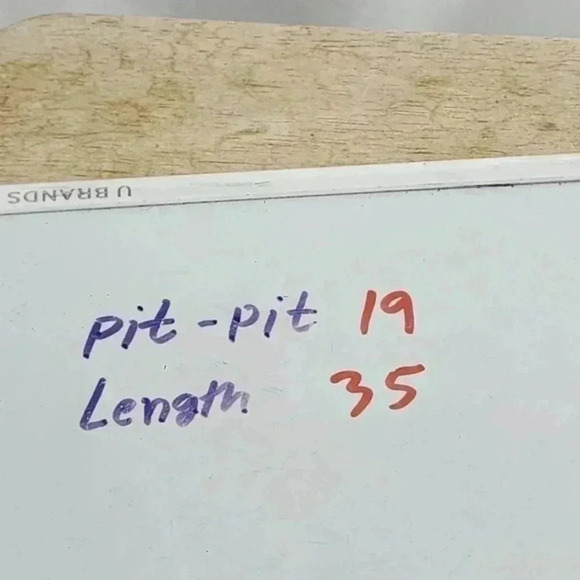 U BRANDS
pit-pit 19
Length 35